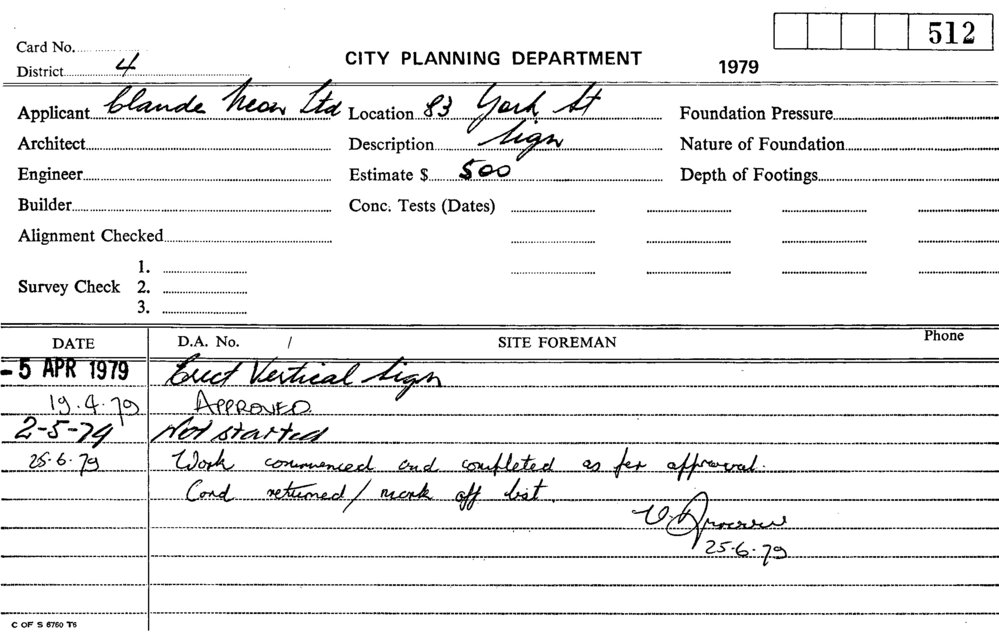 512
Card No.
CITY PLANNING DEPARTMENT
1979
District 4
Applicant Claude Neon Ltd Location 83 York St Foundation Pressure
Architect Description Sign Nature of Foundation
Engineer Estimate $ 500 Depth of Footings
Builder Conc. Tests (Dates)
Alignment Checked
Survey Check 1.
2.
3.
DATE D.A. No. / SITE FOREMAN Phone
-5 APR 1979 Erect Vertical Sign
19.4.79 APPROVED.
2-5-79 Not started
25.6.79 Work commenced and completed as per approval.
Card returned / mark off list.
25.6.79
C OF S 6760 T6